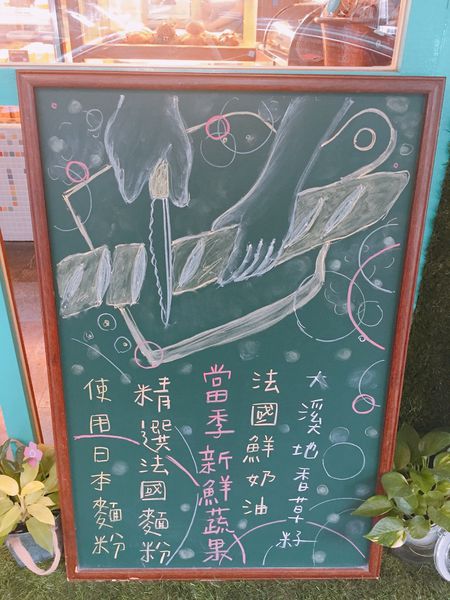 大溪地香草籽
法國鮮奶油
當季新鮮蔬果
精選法國麵粉
使用日本麵粉